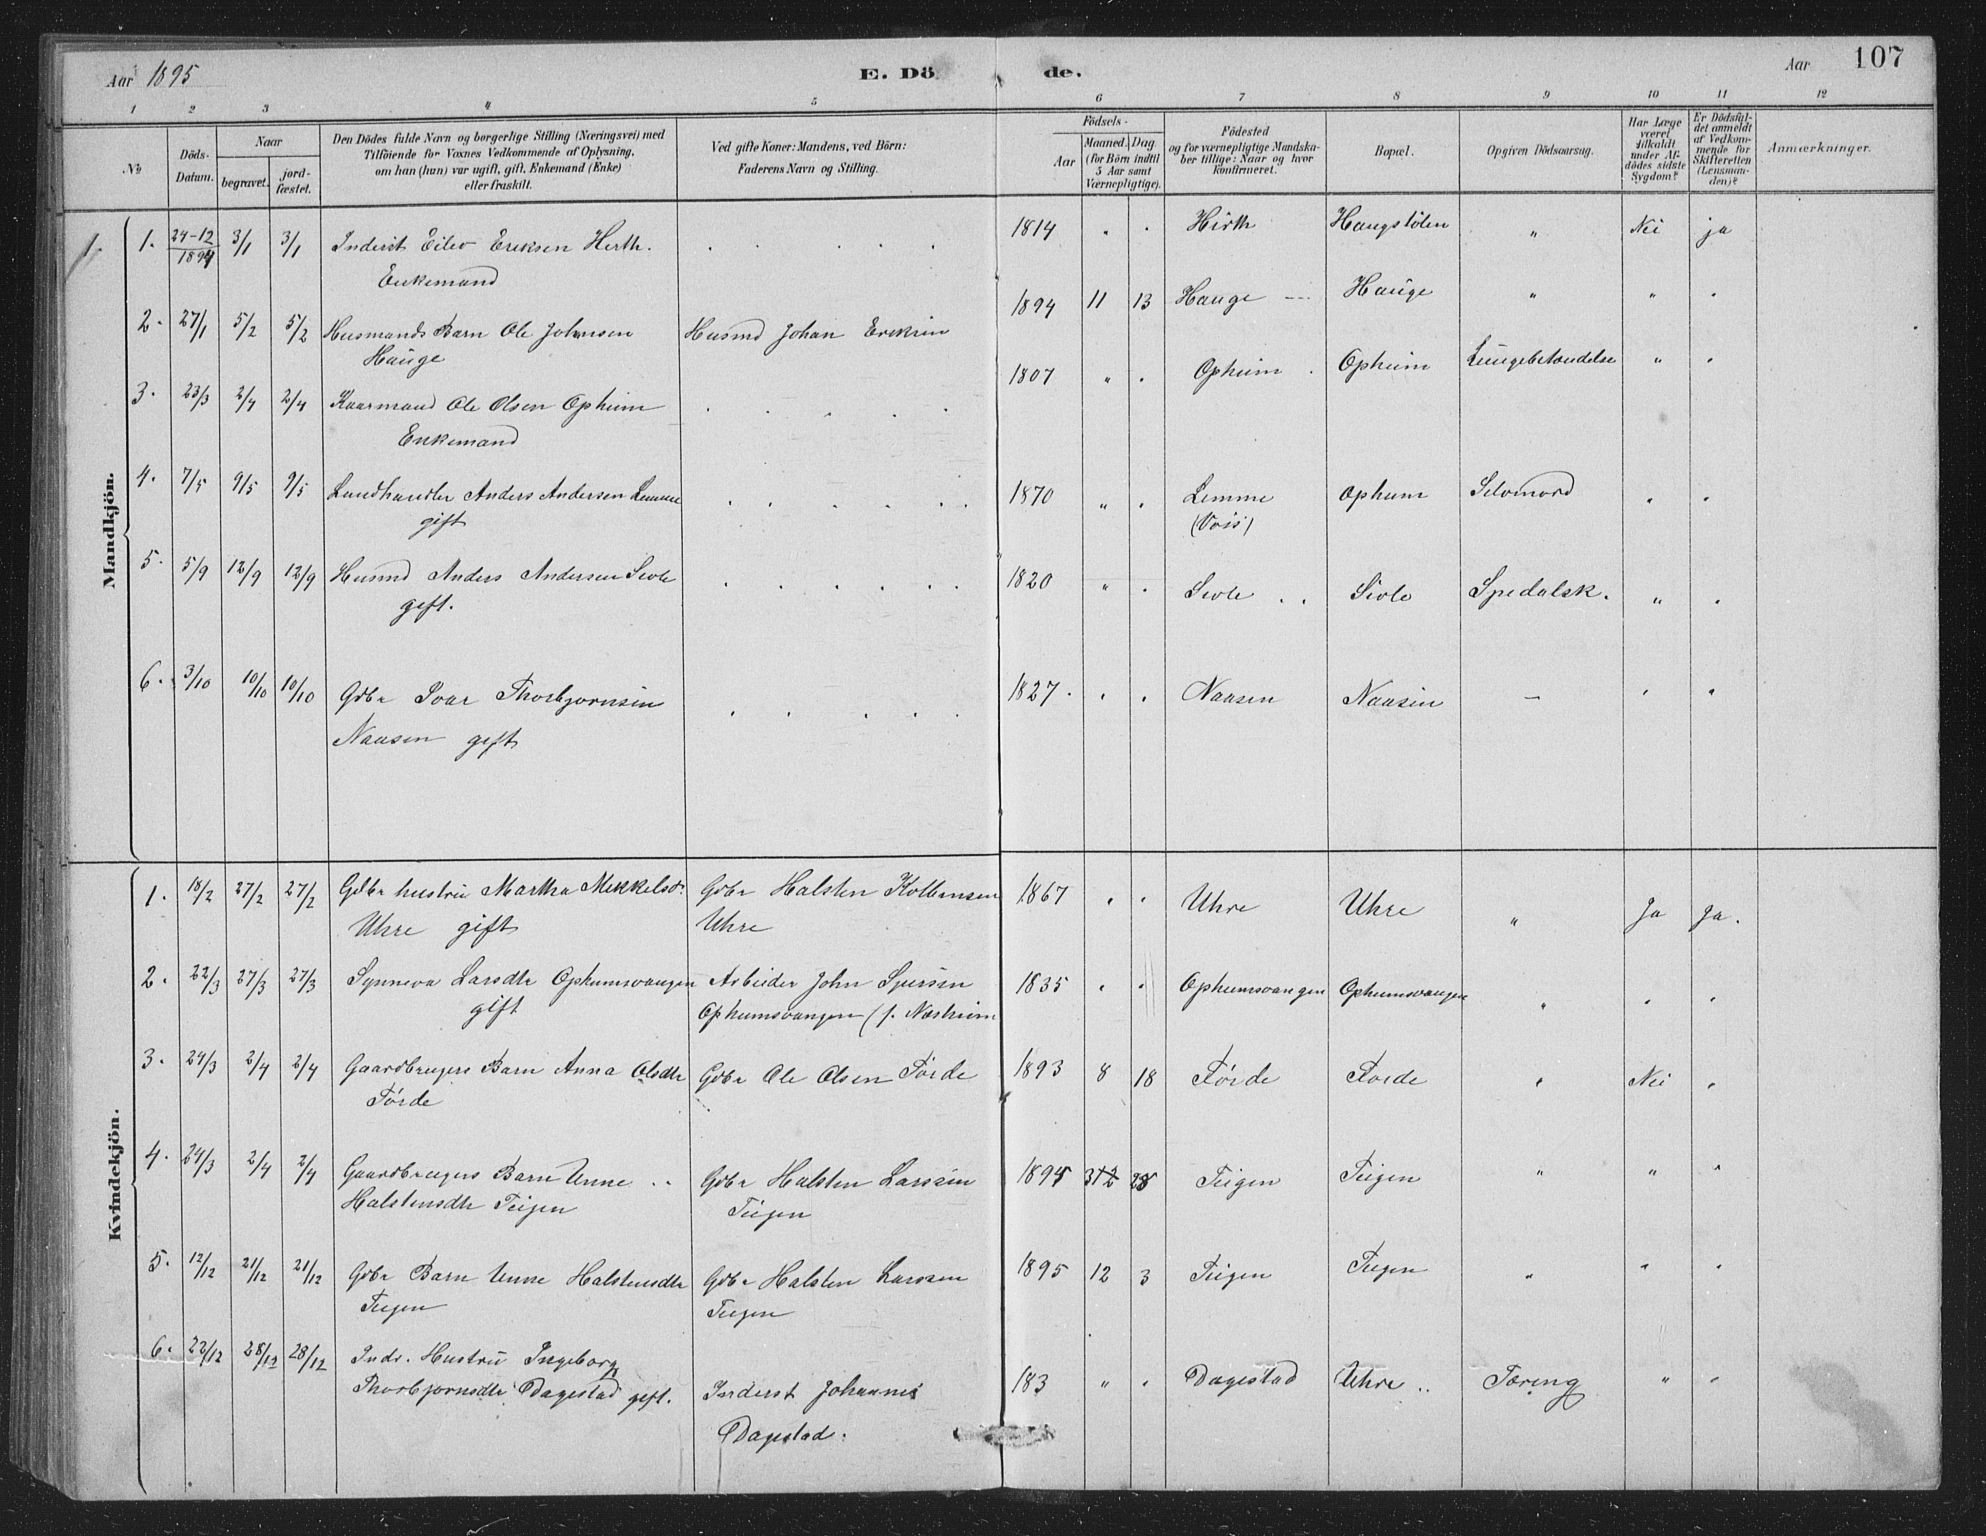 Aar 1895 E. Dö de. Aar 107
1 2 3 4 5 6 7 8 9 10 11 12
No
Döds-Datum.
Naar
begravet.
jordfæstet.
Den Dödes fulde Navn og borgerlige Stilling (Næringsvei) med
Tilföiende for Voxnes Vedkommende af Oplysning,
om han (hun) var ugift, gift, Enkemand (Enke)
eller fraskilt.
Ved gifte Koner: Mandens, ved Börn:
Faderens Navn og Stilling.
Födsels-
Aar
Maaned. Dag.
(for Börn indtil
5 Aar samt
Værnepligtige).
Födested
og for værnepligtige Mandska-
ber tillige: Naar og hvor
konfirmeret.
Bopæl.
Opgiven Dödsaarsag.
Har Læge
været
tilkaldt
under Af-
dödes sidste
Sygdom?
Er Dödsfal-
det anmeldt
af Vedkom-
mende for
Skifteretten
(Lensman-
den)?
Anmærkninger.
Mandkjön.
1. 24-12 1894 3/1 3/1 Inderst Eilev Eriksen Herth. 1814 " " Hirth Haugstölen " Nei ja
Enkemand
2. 27/1 5/2 5/2 Husmands Barn Ole Johnsen Husmd Johan Eriksen 1894 11 13 Hauge Hauge " " "
Hauge
3. 23/3 2/4 2/4 Kaarmand Ole Olsen Opheim 1807 " " Opheim Opheim Lungebetændelse " "
Enkemand
4. 7/5 9/5 9/5 Landhandler Anders Andersen Lemme 1870 " " Lemme Ophem Selvmord " "
gift (Vois)
5. 5/9 12/9 12/9 Husmd Anders Andersen Sivle 1820 " " Sivle Sivle Spedalsk. " "
gift.
6. 3/10 10/10 10/10 Gdbr Ivar Thorbjornsen 1827 " " Naasen Naasen — " "
Naasen gift
Kvindekjön.
1. 18/2 27/2 27/2 Gdbr hustru Martha Mikkelsd. Gdbr Halsten Kolbensen 1867 " " Uhre Uhre " Ja Ja.
Uhre gift Uhre
2. 22/3 27/3 27/3 Synneva Larsdtr Ophemsvangen Arbeider John Sjursen 1835 " " Ophemsvangen Ophemsvangen " " "
gift Ophemsvangen (f. Næsheim
3. 24/3 2/4 2/4 Gaardbrugers Barn Anna Olsdtr Gdbr Ole Olsen Förde 1893 8 18 Förde Förde " Nei "
Förde
4. 24/3 2/4 2/4 Gaardbrugers Barn Unne Gdbr Halsten Larssen 1895 Teigen Teigen " " "
Halstensdtr Teigen Teigen
5. 12/12 21/12 21/12 Gdbr Barn Unne Halstensdtr Gdbr Halsten Larssen 1895 12 3 Teigen Teigen " " "
Teigen Teigen
6. 22/12 28/12 28/12 Indr. Hustru Ingeborg
Thorbjornsdtr Dagestad gift. Inderst Johannes 183 " " Dagestad Uhre Tæring " "
Dagestad.